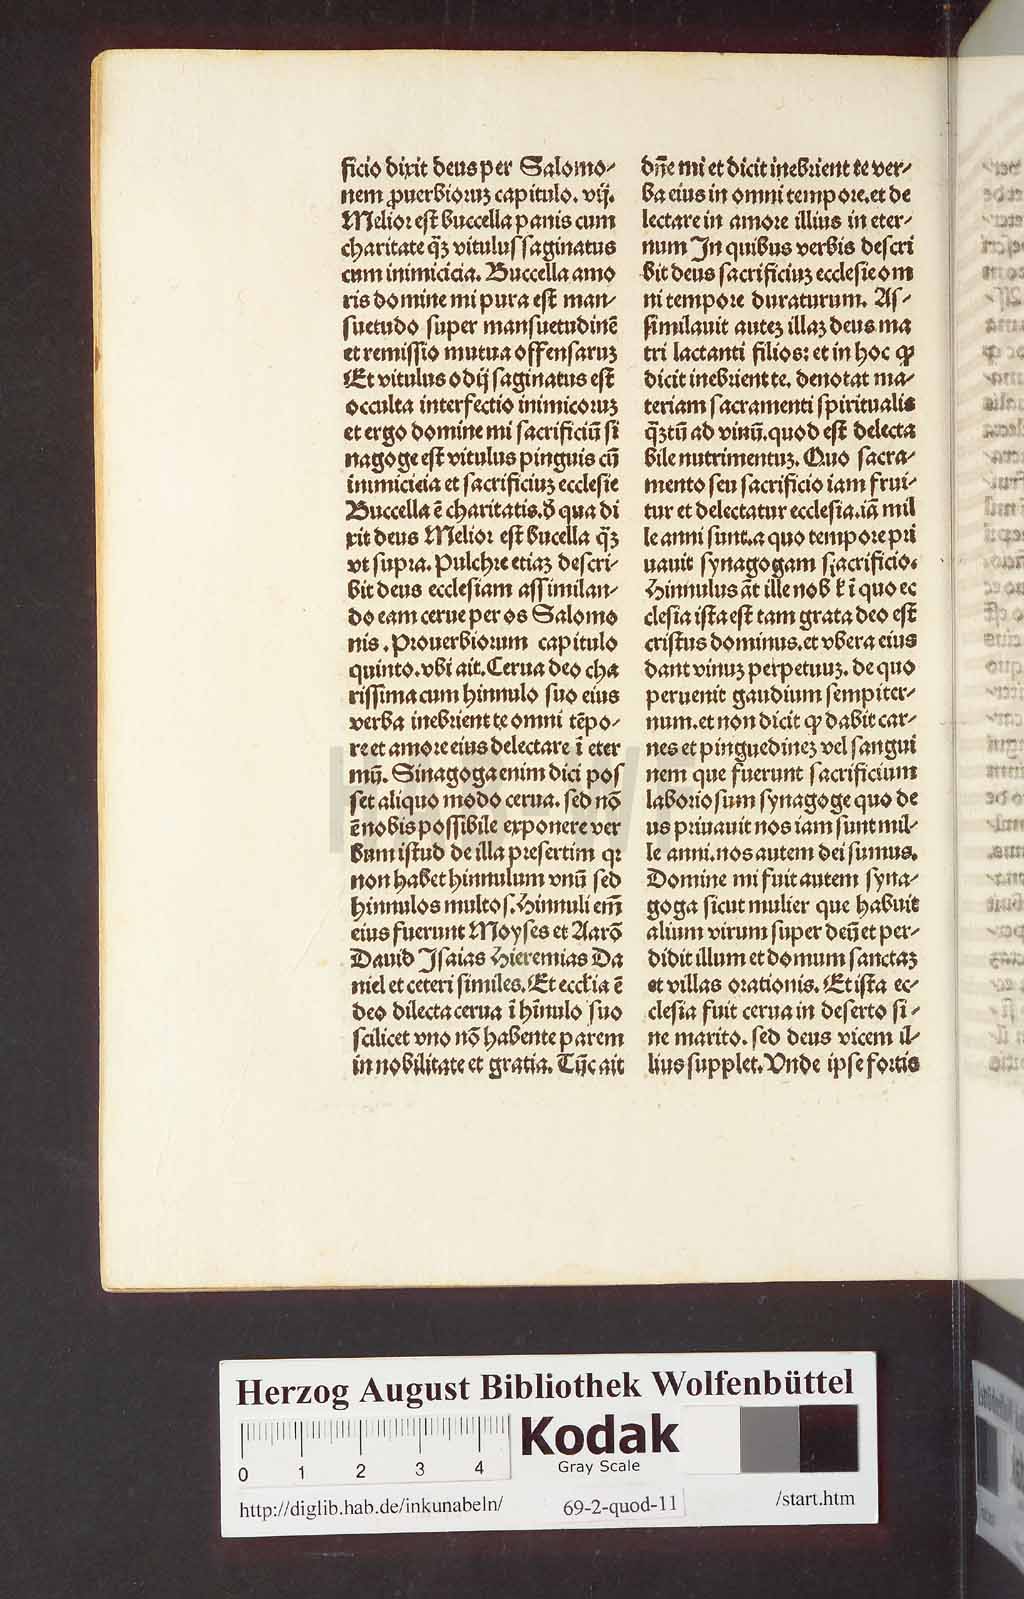 ficio dixit deus per Salomo⸗
nem ꝓuerbioruʒ capitulo. vij.
Melior est buccella panis cum
charitate q̃ʒ vitulus saginatus
cum inimicicia. Buccella amo
ris domine mi pura est man⸗
suetudo super mansuetudinē
et remissio mutua offensaruʒ
Et vitulus odij saginatus est
occulta interfectio inimicoruʒ
et ergo domine mi sacrificiū si
nagoge est vitulus pinguis cū
inimicicia et sacrificiuʒ ecclesie
Buccella ē charitatis. d̕ qua di
xit deus Melior est bucella q̃ʒ
vt supra. Pulchre etiaʒ descri⸗
bit deus ecclesiam assimilan⸗
do eam cerue per os Salomo
nis. Prouerbiorum capitulo
quinto. vbi ait. Cerua deo cha
rissima cum hinnulo suo eius
verba inebrient te omni tēpo⸗
re et amore eius delectare ī eter
nū. Sinagoga enim dici pos
set aliquo modo cerua. sed nō
ē nobis possibile exponere ver
bum istud de illa presertim qꝛ
non habet hinnulum vnū sed
hinnulos multos. Hinnuli em̄
eius fuerunt Moyses et Aarō
Dauid Isaias Hieremias Da
niel et ceteri similes. Et eccłia ē
deo dilecta cerua ī hīnulo suo
scilicet vno nō habente parem
in nobilitate et gratia. Tūc ait
dn̄e mi et dicit inebrient te ver⸗
ba eius in omni tempore. et de
lectare in amore illius in eter⸗
num In quibus verbis descri
bit deus sacrificiuʒ ecclesie om
ni tempore duraturum. As⸗
similauit auteʒ illaʒ deus ma
tri lactanti filios: et in hoc ꝙ
dicit inebrient te. denotat ma⸗
teriam sacramenti spiritualis
q̃ʒtū ad vinū. quod est delecta
bile nutrimentuʒ. Quo sacra⸗
mento seu sacrificio iam frui⸗
tur et delectatur ecclesia. iā mil
le anni sunt. a quo tempore pri
uauit synagogam sacrificio.
Hinnulus āt ille nobł ī quo ec
clesia ista est tam grata deo est
cristus dominus. et vbera eius
dant vinuʒ perpetuuʒ. de quo
peruenit gaudium sempiter⸗
num. et non dicit ꝙ dabit car⸗
nes et pinguedineʒ vel sangui
nem que fuerunt sacrificium
laboriosum synagoge quo de
us priuauit nos iam sunt mil⸗
le anni. nos autem dei sumus.
Domine mi fuit autem syna⸗
goga sicut mulier que habuit
alium virum super deū et per⸗
didit illum et domum sanctaʒ
et villas orationis. Et ista ec⸗
clesia fuit cerua in deserto si⸗
ne marito. sed deus vicem il⸗
lius supplet. Vnde ipse fortis
Herzog August Bibliothek Wolfenbüttel
0 1 2 3 4
Kodak
Gray Scale
http://diglib.hab.de/inkunabeln/ 69-2-quod-11 /start.htm